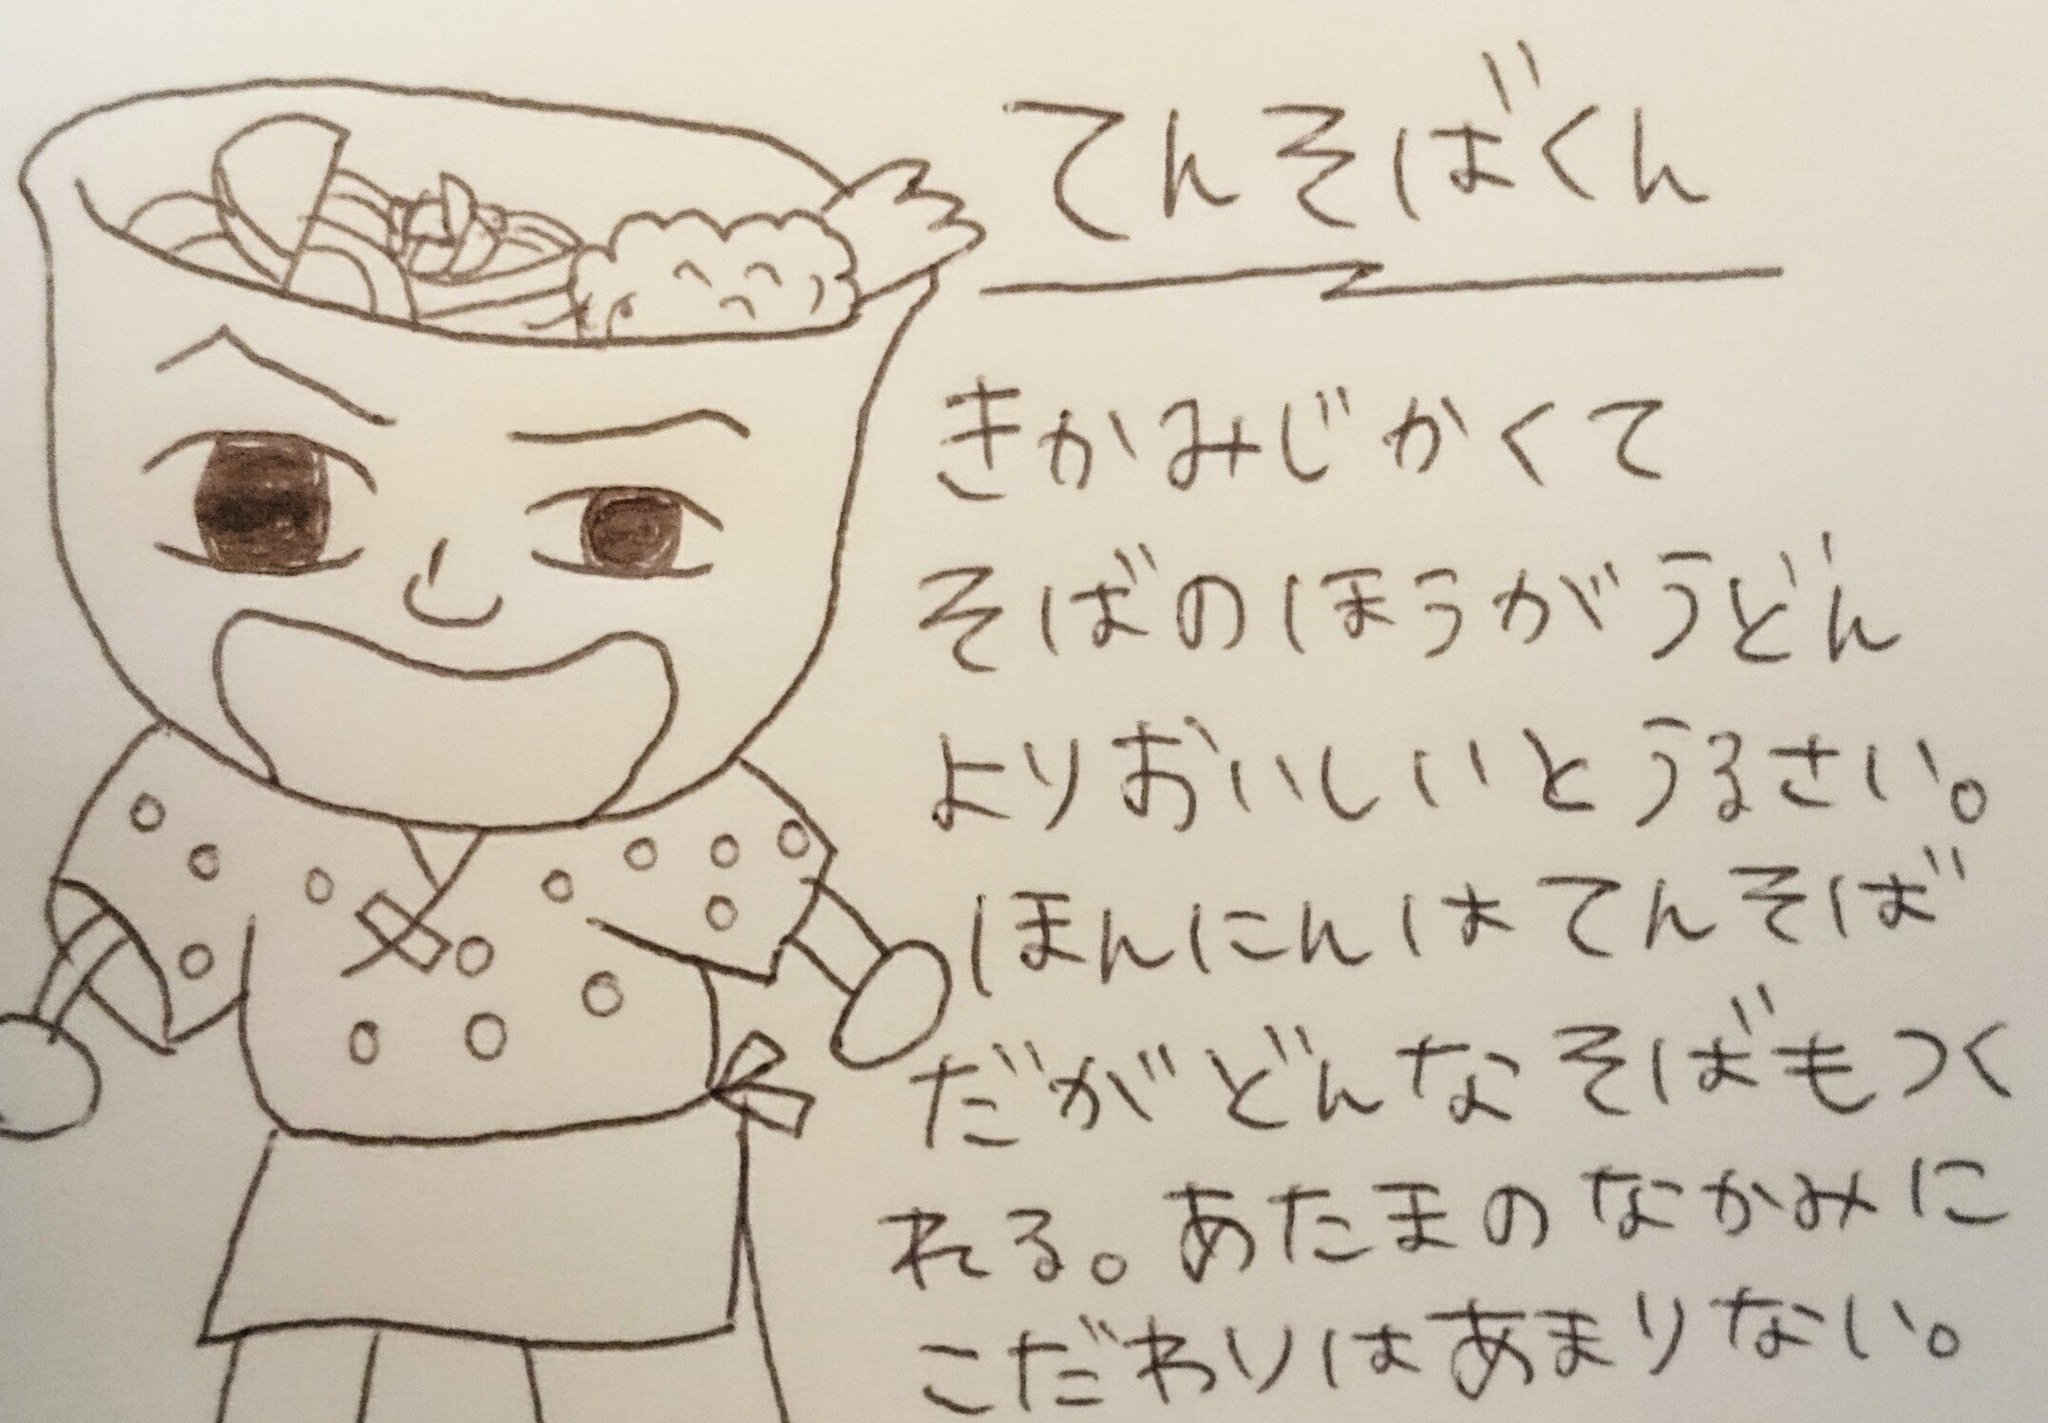 てんそばくん
きかみじかくて
そばのほうがうどん
よりおいしいとうるさい。
ほんにんはてんそば
だがどんなそばもつく
れる。あたまのなかみに
こだわりはあまりない。